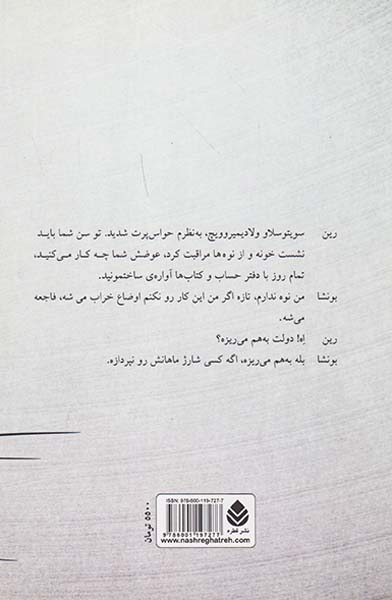 رین سویتوسلاو ولادیمیروویچ، به‌نظرم حواس‌پرت شدید. تو سن شما باید
نشست خونه و از نوه‌ها مراقبت کرد، عوضش شما چه کار می‌کنید،
تمام روز با دفتر حساب و کتاب‌ها آواره‌ی ساختمونید.
بونشا من نوه ندارم، تازه اگر من این کار رو نکنم اوضاع خراب می شه، فاجعه
می‌شه.
رین اِه! دولت به‌هم می‌ریزه؟
بونشا بله به‌هم می‌ریزه، اگه کسی شارژ ماهانش رو نپردازه.
ISBN: 978-600-119-727-7
9786001197277
نشر قطره
www.nashreghatreh.com
۵۵۰۰ تومان